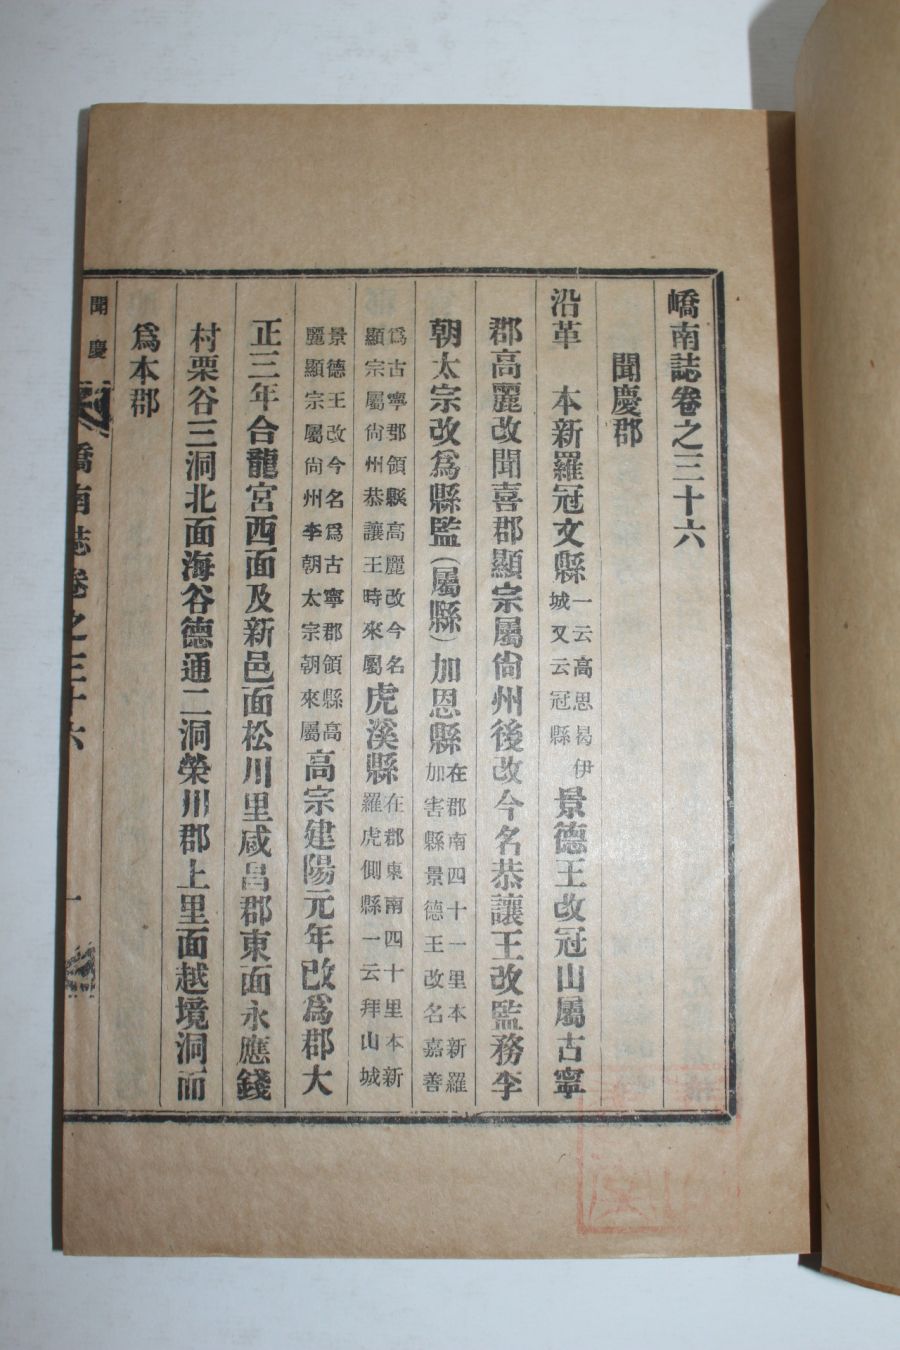 嶠南誌卷之三十六
聞慶郡
沿革 本新羅冠文縣一云高思曷伊城又云冠縣景德王改冠山屬古寧
郡高麗改聞喜郡顯宗屬尙州後改今名恭讓王改監務李
朝太宗改爲縣監(屬縣)加恩縣在郡南四十一里本新羅加害縣景德王改名嘉善
爲古寧郡領縣高麗改今名顯宗屬尙州恭讓王時來屬虎溪縣在郡東南四十里本新羅虎側縣一云拜山城
景德王改今名爲古寧郡領縣高麗顯宗屬尙州李朝太宗朝來屬高宗建陽元年改爲郡大
正三年合龍宮西面及新邑面松川里咸昌郡東面永應錢
村栗谷三洞北面海谷德通二洞榮川郡上里面越境洞而
爲本郡
聞慶
嶠南誌卷之三十六
一